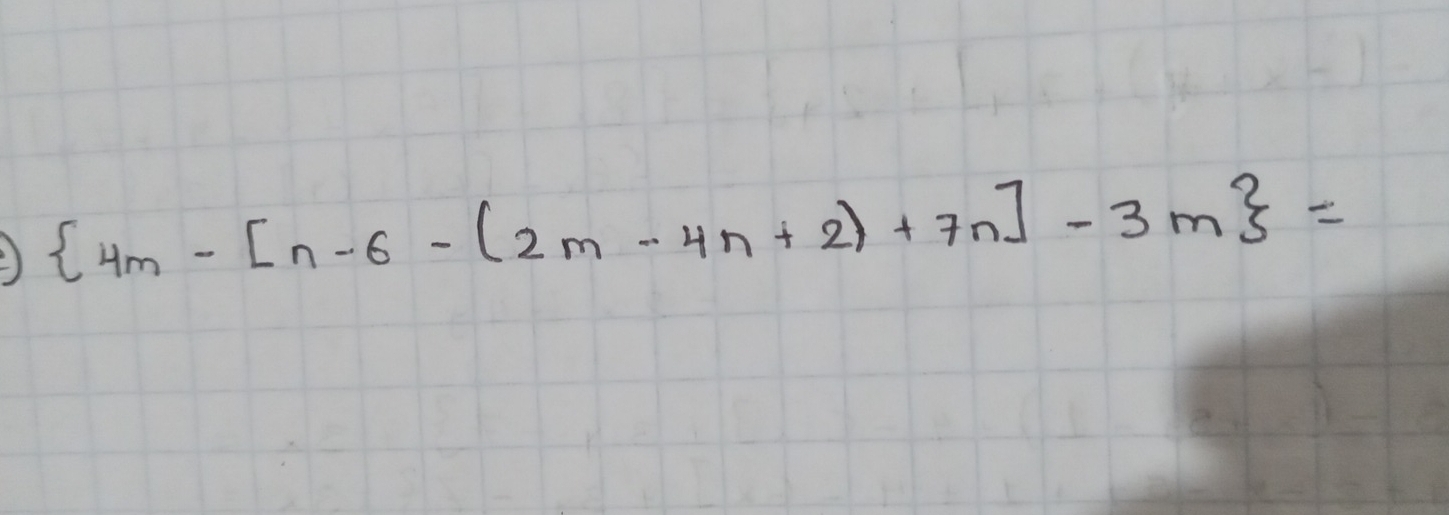 ) {4m - [n - 6 - (2m - 4n + 2) + 7n] - 3m} =